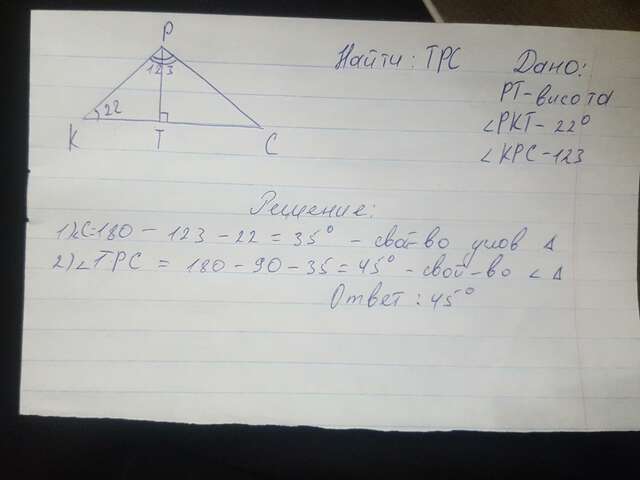 P
123
22
K
T
C
Найти: TPC
Дано:
PT-высота
∠PKT-22°
∠KPC-123
Решение:
1)∠C=180-123-22=35° - свой-во углов Δ
2)∠TPC = 180-90-35=45° - свой-во ∠ Δ
Ответ: 45°